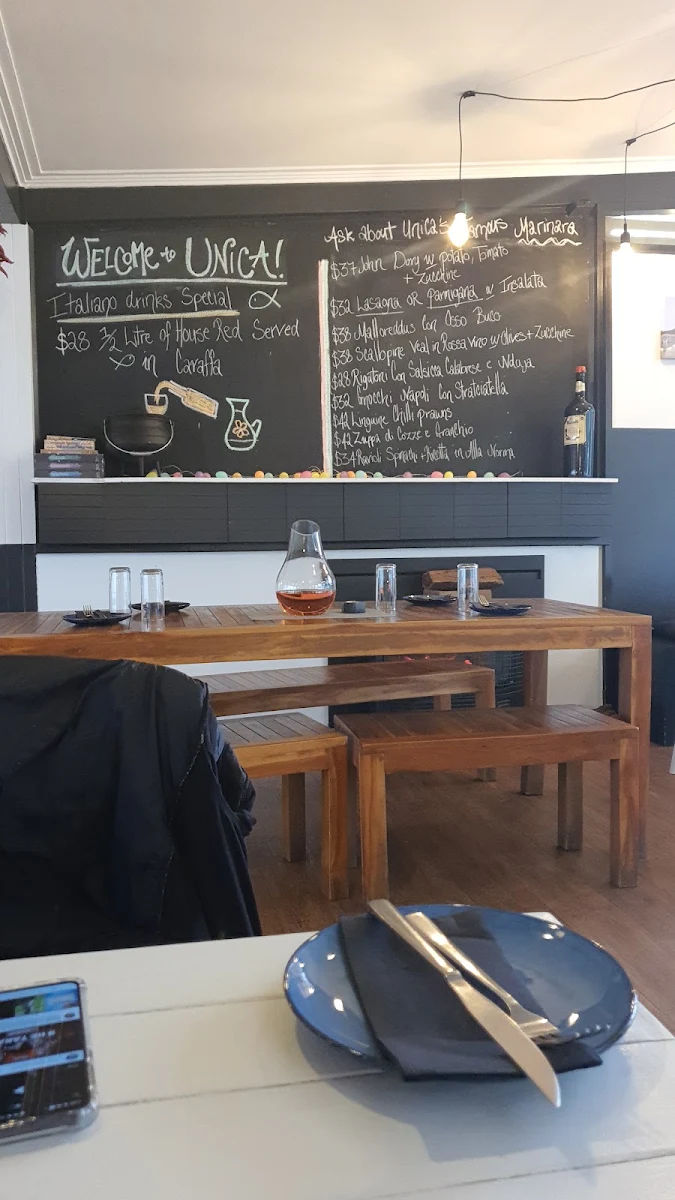 WELCOME to UNICA!
Italiano drinks Special
$28 ½ Litre of House Red Served
in Caraffa
Ask about Unica's Famous Marinara
$37 John Dory w potato, Tomato
+ Zucchine
$32 Lasagna OR Parmigiana w Insalata
$38 Malloreddus Con Osso Buco
$38 Scallopine Veal in Rossa vino w Olives + Zucchine
$28 Rigatoni Con Salsicca Calabrese e Nduja
$32 Gnocchi Napoli Con Stratciatella
$42 Linguine Chilli Prawns
$42 Zuppa di Cozze e Granchio
$34 Ravioli Spinachi + Ricotta in Alla Norma